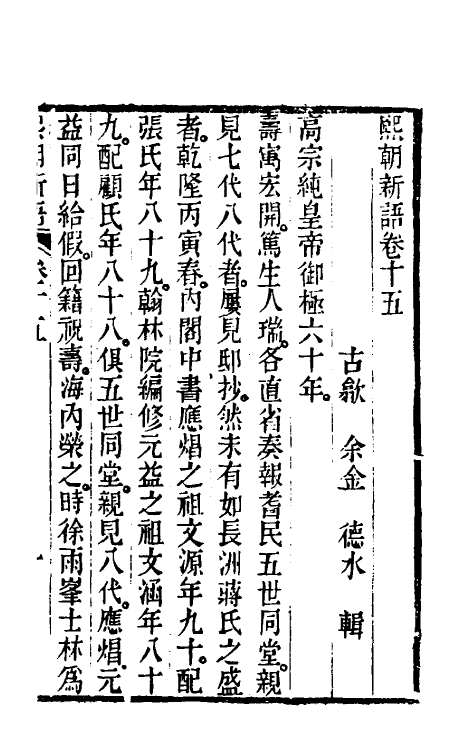 熙朝新語卷十五
古歙　余金　德水　輯
高宗純皇帝御極六十年。
壽㝢宏開。篤生人瑞。各直省奏報耆民五世同堂。親
見七代八代者。屢見邸抄。然未有如長洲蔣氏之盛
者。乾隆丙寅春。內閣中書應焻之祖文源年九十。配
張氏年八十九。翰林院編修元益之祖文涵年八十
九。配顧氏年八十八。俱五世同堂。親見八代。應焻元
益同日給假。回籍祝壽。海內榮之。時徐雨峯士林爲
熙朝新語　卷十五　一